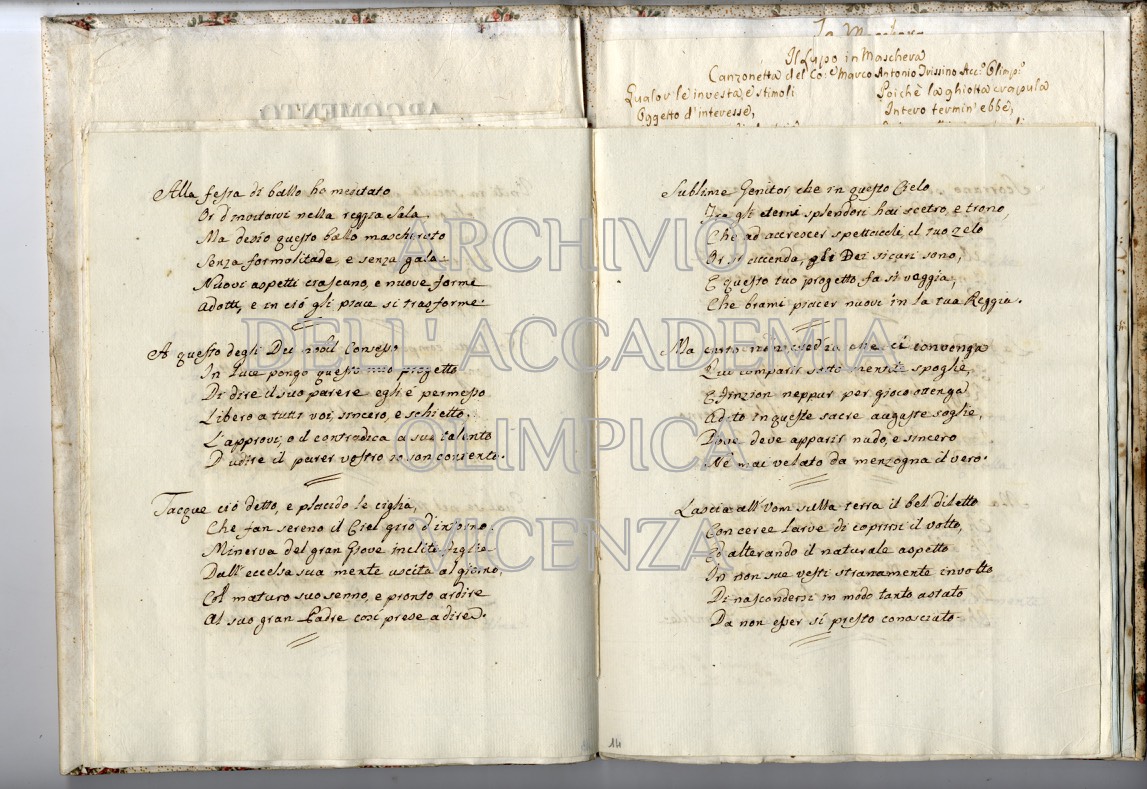 ARGOMENTO
La Maschera
Il Lupo in Maschera
Canzonetta del Co: Marco Antonio Trissino Acc.º Olimp.º
Qualor le investa e stimoli
Oggetto d'interesse,
Poichè la ghiotta crapula
Intero termin' ebbe,
Alla festa di ballo ho meditato
Or d'invitarvi nella reggia Sala.
Ma desio questo ballo mascherato
Senza formalitade, e senza gala:
Nuovi aspetti ciascuno, e nuove forme
Adotti, e in ciò gli piace si trasforme.
A questo degli Dei nobil Consesso
In luce pongo questo mio progetto
Di dire il suo parere egli è permesso
Libero a tutti voi, sincero, e schietto.
L'approvi, o il contradica a suo talento
D'udire il parer vostro io son contento.
Tacque ciò detto, e placido le ciglia,
Che fan sereno il Ciel girò d'intorno.
Minerva del gran Giove inclita figlia
Dall' eccelsa sua mente uscita al giorno,
Col maturo suo senno, e pronto ardire
Al suo gran Padre così prese a dire.
Sublime Genitor che in questo Cielo
Fra gli eterni splendori hai scetro, e trono,
Che ad accrescer spettacoli, il tuo zelo
Or si accenda, gli Dei sicuri sono,
E questo tuo progetto fa si veggia,
Che brami piacer nuovi in la tua Reggia.
Ma certo non credea che ci convenga
Qui comparir sotto mentite spoglie,
E Finzion neppur per gioco ottenga
Adito in queste sacre auguste soglie,
Dove deve apparir nudo, e sincero
Nè mai velato da menzogna il vero.
Lascia all' Uom sulla terra il bel diletto
Con ceree larve di coprirsi il volto,
Ed alterando il naturale aspetto
In non sue vesti stranamente involto
Di nascondersi in modo tanto astuto
Da non esser sì presto conosciuto.
14
ARCHIVIO
DELL'ACCADEMIA
OLIMPICA
VICENZA